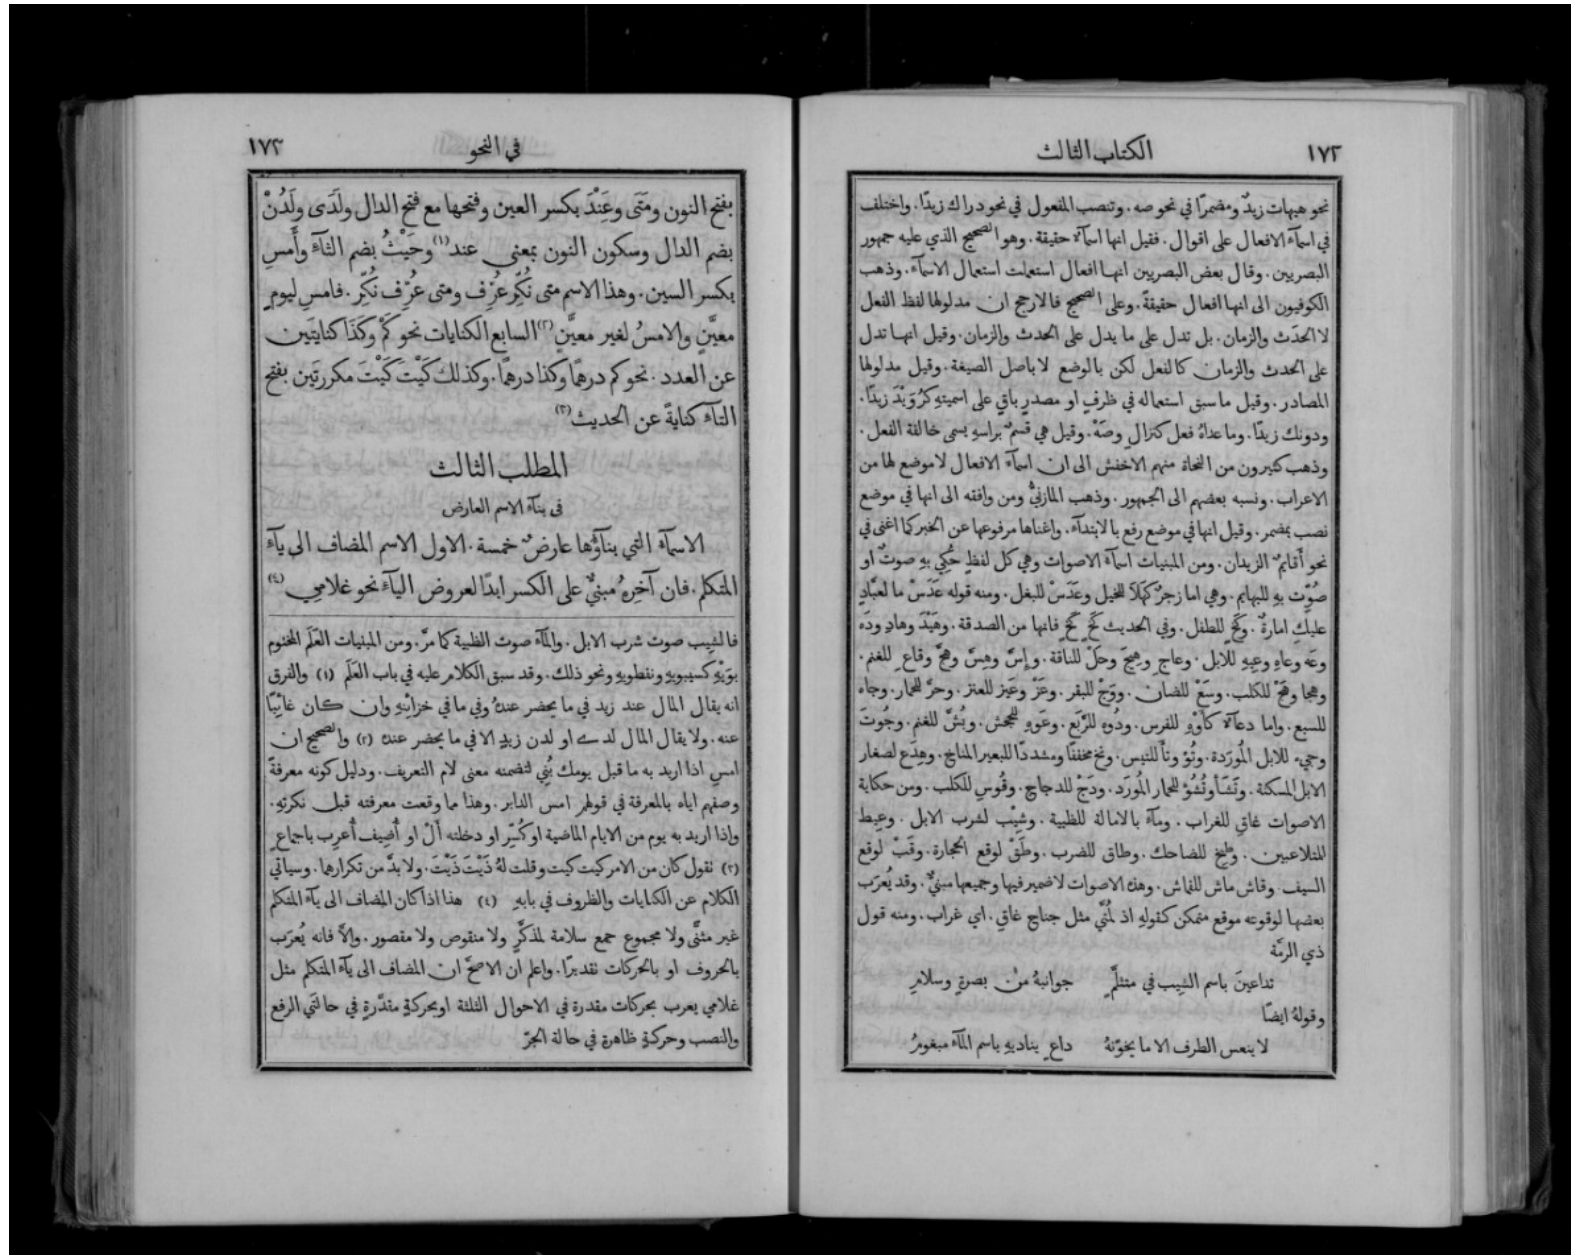 ١٧٢
الكتاب الثالث
نحو هيهات زيدٌ ومضمرًا في نحو صه. وتنصب المفعول في نحو دراك زيدًا. واختلف
في اسمآء الافعال على اقوال. فقيل انها اسمآء حقيقة. وهو الصحيح الذي عليه جمهور
البصريين. وقال بعض البصريين انها افعال استعملت استعمال الاسمآء. وذهب
الكوفيون الى انها افعال حقيقةً. وعلى الصحيح فالارجح ان مدلولها لفظ الفعل
لا الحَدَث والزمان. بل تدل على ما يدل على الحدث والزمان. وقيل انها تدل
على الحدث والزمان كالفعل لكن بالوضع لا باصل الصيغة. وقيل مدلولها
المصادر. وقيل ما سبق استعماله في ظرفٍ او مصدرٍ باقٍ على اسميتهِ كرُوَيْدَ زيدًا.
ودونك زيدًا. وما عداهُ فعل كنزالِ وصَهْ. وقيل هي قسمٌ براسهِ يسمى خالفة الفعل.
وذهب كثيرون من النحاة منهم الاخفش الى ان اسمآء الافعال لا موضع لها من
الاعراب. ونسبه بعضهم الى الجمهور. وذهب المازنيُّ ومن وافقه الى انها في موضع
نصب بمضمر. وقيل انها في موضع رفع بالابتدآء. واغناها مرفوعها عن الخبر كما اغنى في
نحو أَقايمٌ الزيدان. ومن المبنيات اسمآء الاصوات وهي كل لفظٍ حُكِي بهِ صوتٌ او
صُوِّت بهِ للبهايم. وهي اما زجرٌ كهَلَا للخيل وعَدَسْ للبغل. ومنه قوله عَدَسْ ما لعبَّادٍ
عليكِ امارةٌ. وكَخٍ للطفل. وفي الحديث كَخٍ كَخٍ فانها من الصدقة. وهَيْدَ وهادِ ودَه
وعَه وعاهِ وعِيهِ للابل. وعاجِ وهيجَ وحَلْ للناقة. وإِسَّ وهِسَّ وهجَّ وقاعِ للغنم.
وهجا وهَجْ للكلب. وسَعْ للضان. ووَحْ للبقر. وعَزْ وعَيز للعنز. وحرَّ للحمار. وجاه
للسبع. واما دعآء كأَوْوِ للفرس. ودُوهِ للرُّبَع. وعَوهِ للجحش. وبُسَّ للغنم. وجُوتَ
وجيء للابل المُورَدة. وتُؤ وتأ للتيس. ونخ مخففًا ومشددًا للبعير المناخ. وهِدَع لصغار
الابل المسكنة. وتَشَأ وتُشُؤ للحمار المُورَد. ودَجْ للدجاج. وقُوسِ للكلب. ومن حكاية
الاصوات غاقِ للغراب. ومآءِ بالامالة للظبية. وشِيْب لشرب الابل. وعِيط
للمتلاعبين. وطِيخ للضاحك. وطاق للضرب. وطَقْ لوقع الحجارة. وقَبْ لوقع
السيف. وقاش ماش للقماش. وهذه الاصوات لا ضمير فيها وجميعها مبنيٌّ. وقد يُعرَب
بعضها لوقوعه موقع متمكن كقولهِ اذ لمَّتي مثل جناح غاقٍ. اي غراب. ومنه قول
ذي الرمَّة
تداعينَ باسم الشِيب في متثلَّمٍ جوانبهُ من بصرةٍ وسلامِ
وقولهُ ايضًا
لا ينعس الطرف الا ما يخوّنهُ داعٍ يناديهِ باسم المآء مبغومُ
في النحو
١٧٣
بفتح النون ومَتَى وعِنْدَ بكسر العين وفتحها مع فتح الدال ولَدَى ولَدُنْ
بضم الدال وسكون النون بمعنى عند (١) وحَيْثُ بضم الثآء وأَمسِ
بكسر السين. وهذا الاسم متى نُكِّر عُرِّف ومتى عُرِّف نُكِّر. فامسِ ليومٍ
معيَّنٍ والامسُ لغير معيَّنٍ (٢) السابع الكنايات نحو كَمْ وكَذَا كنايتَين
عن العدد. نحو كم درهمًا وكذا درهمًا. وكذلك كَيْتَ كَيْتَ مكررتَين بفتح
التآء كنايةً عن الحديث (٣)
المطلب الثالث
في بنآء الاسم العارض
الاسمآء التي بنآؤُها عارضٌ خمسة. الاول الاسم المضاف الى يآء
المتكلم. فان آخِرهُ مبنيٌّ على الكسر ابدًا لعروض اليآء نحو غلامِي (٤)
فالشِيب صوت شرب الابل. والمآء صوت الظبية كما مرَّ. ومن المبنيات العَلَم المختوم
بوَيْهِ كسيبويهِ ونفطويهِ ونحو ذلك. وقد سبق الكلام عليه في باب العَلَم (١) والفرق
انه يقال المال عند زيد في ما يحضر عندهُ وفي ما في خزاينهِ وان كان غائبًا
عنه. ولا يقال المال لدى او لدن زيدٍ الا في ما يحضر عندهُ (٢) والصحيح ان
امسِ اذا اريد به ما قبل يومك بُنِي لتضمنه معنى لام التعريف. ودليل كونه معرفةً
وصفهم اياه بالمعرفة في قولهم امس الدابر. وهذا مما وقعت معرفته قبل نكرتهِ.
واذا اريد به يوم من الايام الماضية او كُسِّر او دخلته أَلْ او أُضِيف أُعرِب باجماعٍ
(٣) نقول كان من الامر كيت كيت وقلت لهُ ذَيْتَ ذَيْتَ. ولا بدَّ من تكرارها. وسياتي
الكلام عن الكنايات والظروف في بابهِ (٤) هذا اذا كان المضاف الى يآء المتكلم
غير مثنًّى ولا مجموع جمع سلامة لمذكَّرٍ ولا منقوص ولا مقصور. والَّا فانه يُعرَب
بالحروف او بالحركات تقديرًا. واعلم ان الاصحَّ ان المضاف الى يآء المتكلم مثل
غلامي يعرب بحركات مقدرة في الاحوال الثلثة او بحركةٍ مقدَّرةٍ في حالتَي الرفع
والنصب وحركةٍ ظاهرة في حالة الجرّ